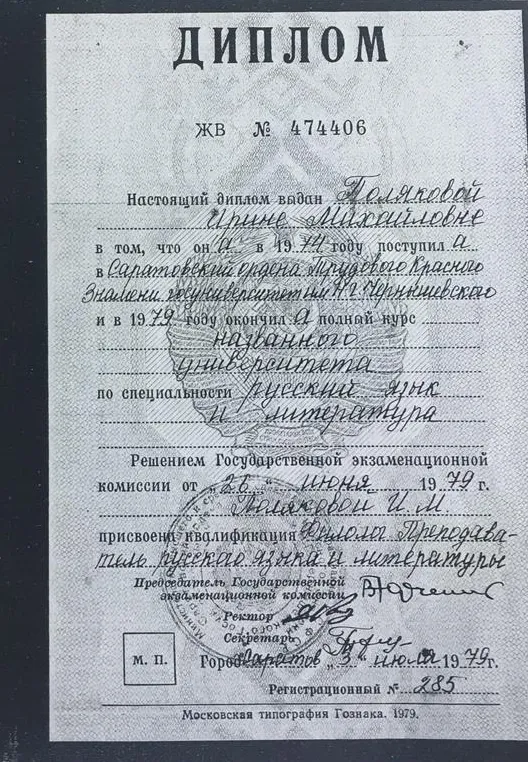 ДИПЛОМ
ЖВ № 474406
Настоящий диплом выдан Поляковой
Ирине Михайловне
в том, что он а в 1974 году поступил а
в Саратовский ордена Трудового Красного
Знамени госуниверситет им Н Г. Чернышевского
и в 1979 году окончил а полный курс
названного
университета
по специальности русский язык
и литература
Решением Государственной экзаменационной
комиссии от „26" июня 1979 г.
Поляковой И. М
присвоена квалификация Филолог Преподава-
тель русского языка и литературы
Председатель Государственной
экзаменационной комиссии
Ректор
Секретарь
М. П.
Город Саратов „3" июля 1979г.
Регистрационный № 285
Московская типография Гознака. 1979.